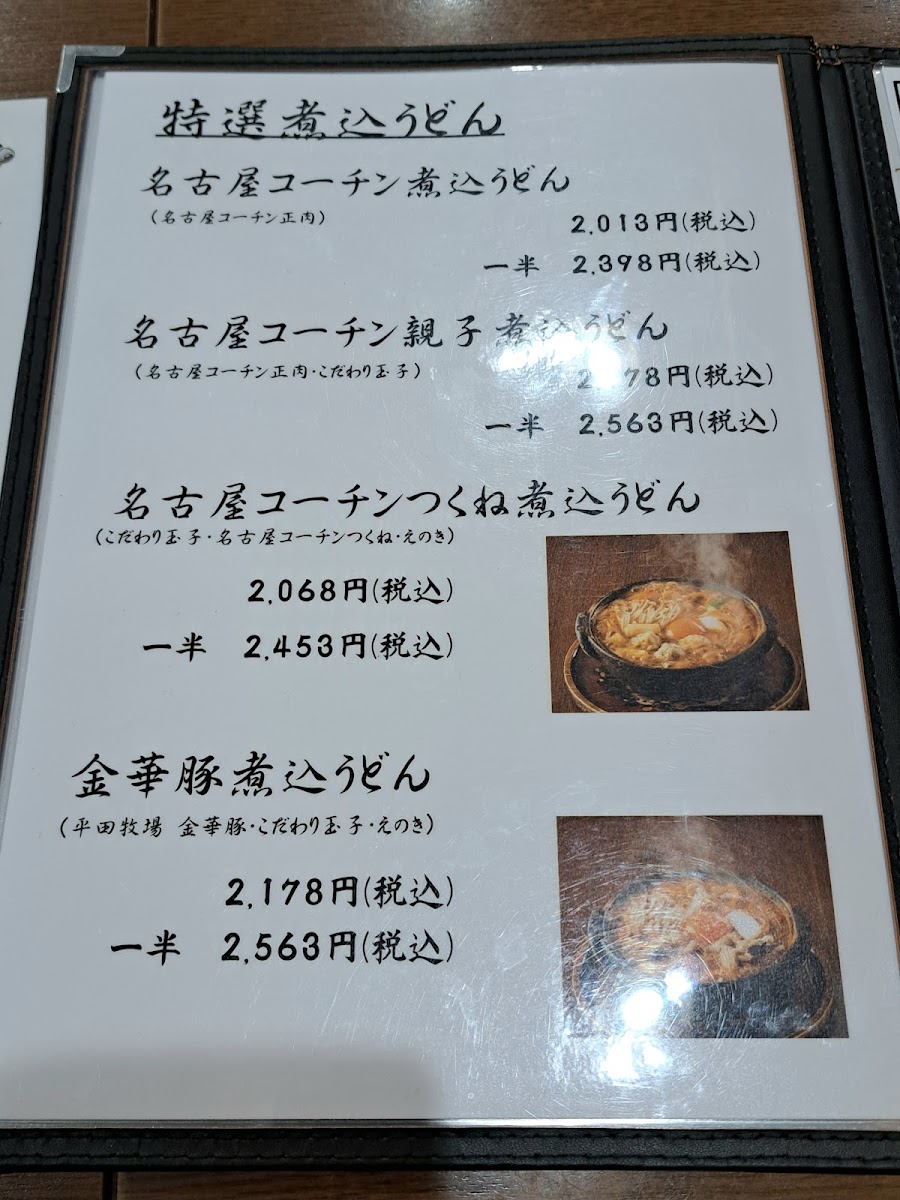 特選煮込うどん
名古屋コーチン煮込うどん
(名古屋コーチン正肉)
2,013円(税込)
一半 2,398円(税込)
名古屋コーチン親子煮込うどん
(名古屋コーチン正肉・こだわり玉子)
78円(税込)
一半 2,563円(税込)
名古屋コーチンつくね煮込うどん
(こだわり玉子・名古屋コーチンつくね・えのき)
2,068円(税込)
一半 2,453円(税込)
金華豚煮込うどん
(平田牧場 金華豚・こだわり玉子・えのき)
2,178円(税込)
一半 2,563円(税込)